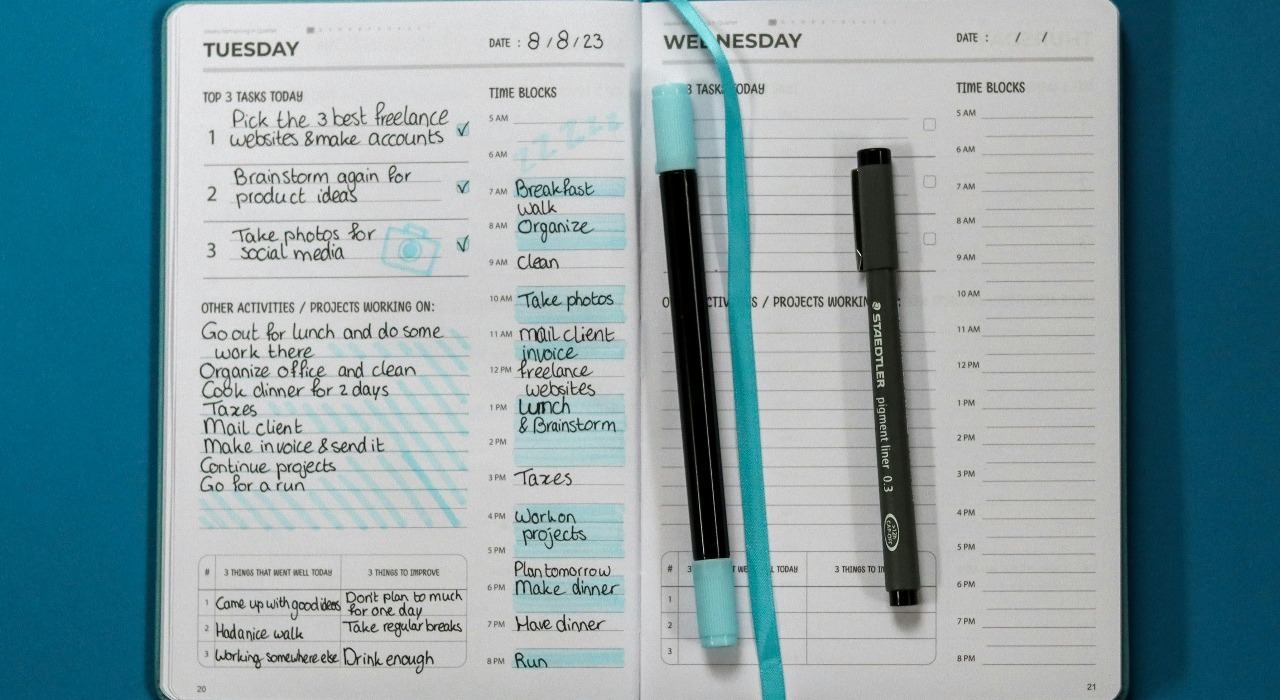 TUESDAY
DATE : 8 / 8 / 23
TOP 3 TASKS TODAY
1 Pick the 3 best freelance
websites & make accounts
2 Brainstorm again for
product ideas
3 Take photos for
social media
OTHER ACTIVITIES / PROJECTS WORKING ON:
Go out for lunch and do some
work there
Organize office and clean
Cook dinner for 2 days
Taxes
Mail client
Make invoice & send it
Continue projects
Go for a run
# 3 THINGS THAT WENT WELL TODAY 3 THINGS TO IMPROVE
1 Came up with good ideas Don't plan to much
for one day
2 Had a nice walk Take regular breaks
3 Working somewhere else Drink enough
20
TIME BLOCKS
5 AM zz zzz
6 AM
7 AM Breakfast
walk
8 AM Organize
9 AM Clean
10 AM Take photos
11 AM mail client
invoice
12 PM freelance
websites
1 PM Lunch
& Brainstorm
2 PM
3 PM Taxes
4 PM Work on
projects
5 PM
Plan tomorrow
6 PM Make dinner
7 PM Have dinner
8 PM Run
WEDNESDAY
DATE : / /
3 TASKS TODAY
ACTIVITIES / PROJECTS WORKING
# 3 TODAY 3 THINGS TO
1
2
3
TIME BLOCKS
5 AM
6 AM
7 AM
8 AM
9 AM
10 AM
11 AM
12 PM
1 PM
2 PM
3 PM
4 PM
5 PM
6 PM
7 PM
8 PM
21
STAEDTLER pigment liner 0.3